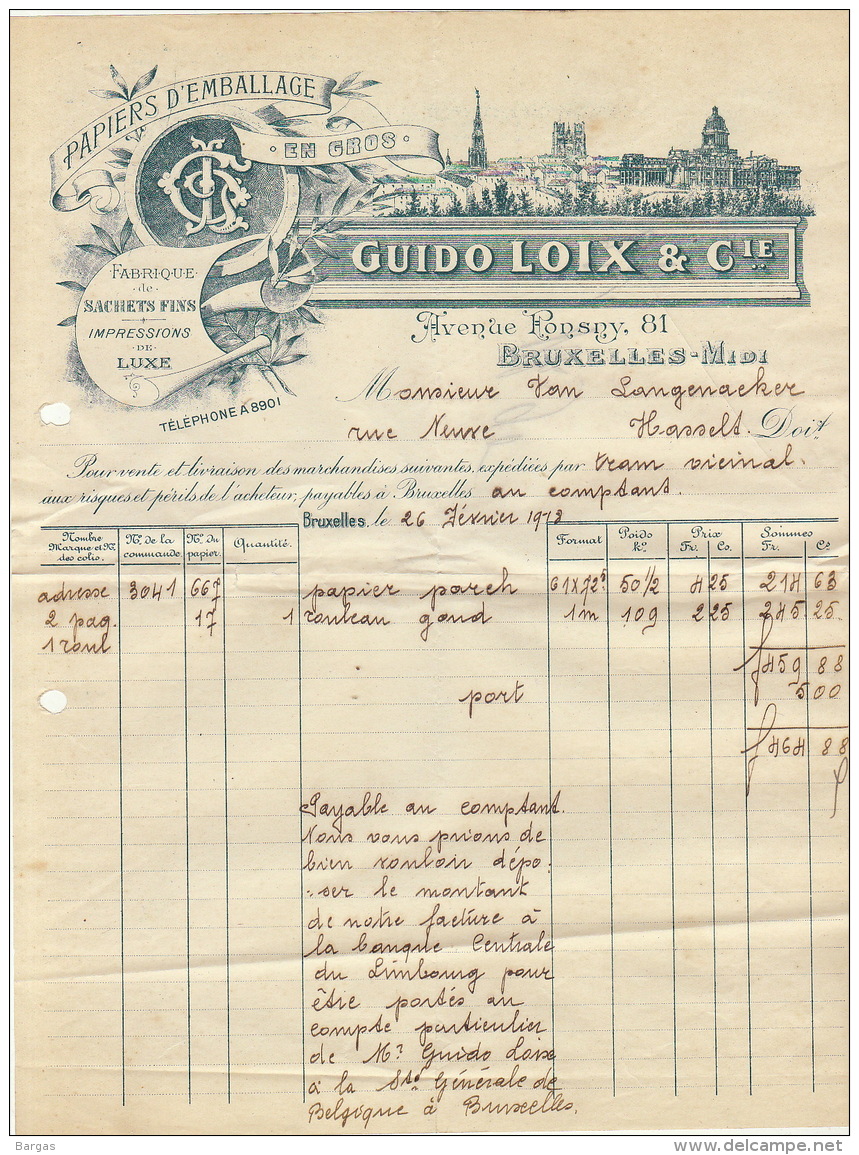 PAPIERS D'EMBALLAGE
· EN GROS ·
GUIDO LOIX & CIE
FABRIQUE
de
SACHETS FINS
IMPRESSIONS
DE
LUXE
TÉLÉPHONE A 8901
Avenue Fonsny, 81
BRUXELLES-MIDI
Monsieur Van Langenacker
rue Neuve Hasselt. Doit
Pour vente et livraison des marchandises suivantes, expédiées par tram vicinal.
aux risques et périls de l'acheteur, payables à Bruxelles au comptant.
Bruxelles, le 26 Février 1918
Nombre Marque et Nº des colis. Nº de la commande. Nº du papier. Quantité. Format Poids kº. Prix Fr. Cs. Sommes Fr. Cs
adresse 3041 667 papier parch 61x72⁵ 50 1/2 4 25 214 63
2 paq. 17 1 rouleau goud 1m 109 2 25 245.25.
1 roul
f 459 88
port 5 00
f 464 88
Payable au comptant.
Nous vous prions de
bien vouloir dépo-
ser le montant
de notre facture à
la banque Centrale
du Limbourg pour
être portés au
compte particulier
de Mr Guido Loix
à la Sté Générale de
Belgique à Bruxelles.
Bargas
www.delcampe.net